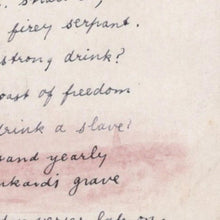 firey serpant.
strong drink?
oast of freedom
drink a slave?
and yearly
nkards grave